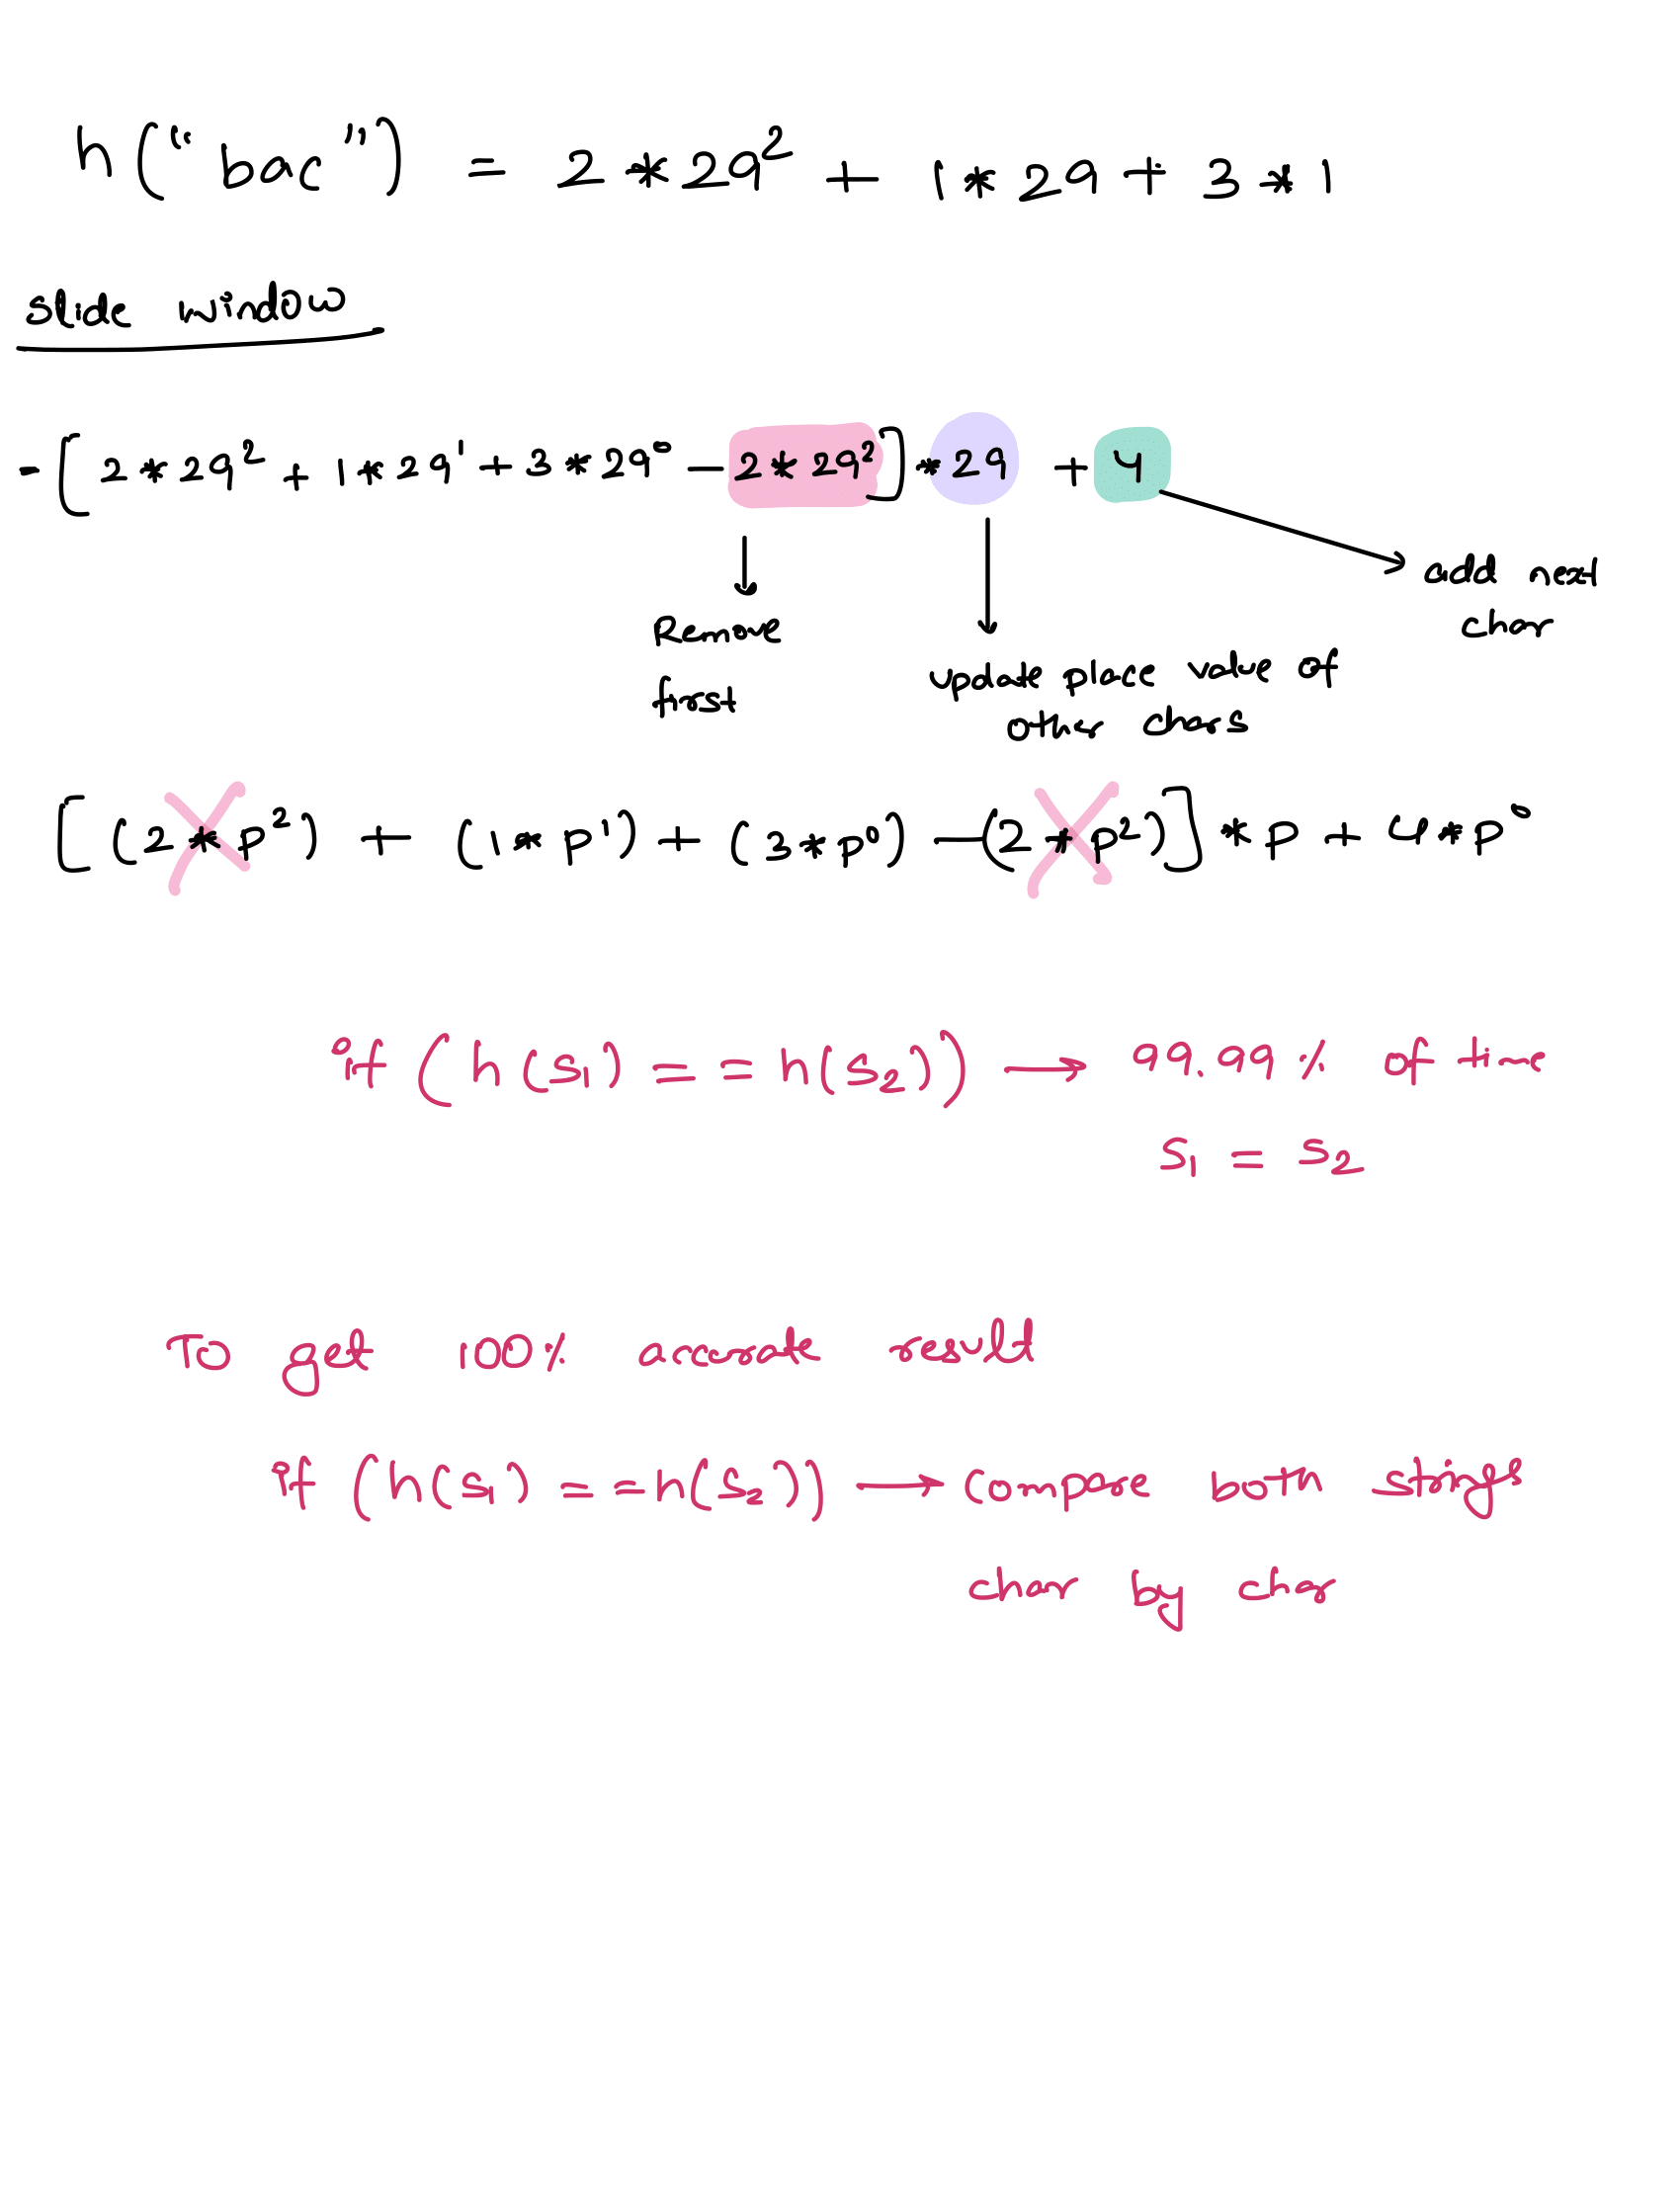 h("bac") = 2 * 29² + 1 * 29 + 3 * 1
slide window
- [2 * 29² + 1 * 29¹ + 3 * 29⁰ - 2 * 29²] * 29 + 4
Remove first
update place value of other chars
add next char
[(2 * p²) + (1 * p¹) + (3 * p⁰) - (2 * p²)] * p + 4 * p⁰
if (h(s₁) == h(s₂)) → 99.99 % of time
s₁ = s₂
To get 100% accurate result
if (h(s₁) == h(s₂)) → compare both strings
char by char